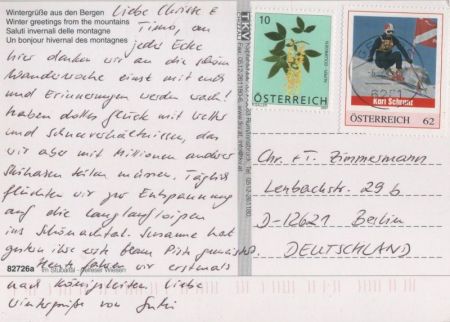 Wintergrüße aus den Bergen
Winter greetings from the mountains
Saluti invernali delle montagne
Un bonjour hivernal des montagnes
Liebe Christe &
Timo, an
jeder Ecke
hier denken wir an die schöne
Wanderwoche einst mit euch
und Erinnerungen werden wach!
Haben dolles Glück mit Wetter
und Schneeverhältnissen, das
wir aber mit Millionen anderer
Skihasen teilen müssen. Täglich
flüchten wir zur Entspannung
auf die Langlaufloipen
ins Schönachtal. Susanne hat
gestern ihre erste blaue Piste gemeistert.
82726a Im Stubaital - Neleser Wiesen
Heute fahren wir erstmals
nach Königsleiten. Liebe
Wintergrüße von
TKV
10
ÖSTERREICH
6251
Karl Schranz
ÖSTERREICH 62
Chr. + T. Zimmermann
Lenbachstr. 29 b
D-12621 Berlin
DEUTSCHLAND